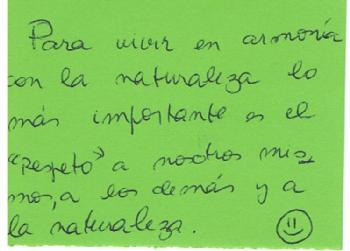 Para vivir en armonía
con la naturaleza lo
más importante es el
"respeto" a nosotros mis-
mos, a los demás y a
la naturaleza.